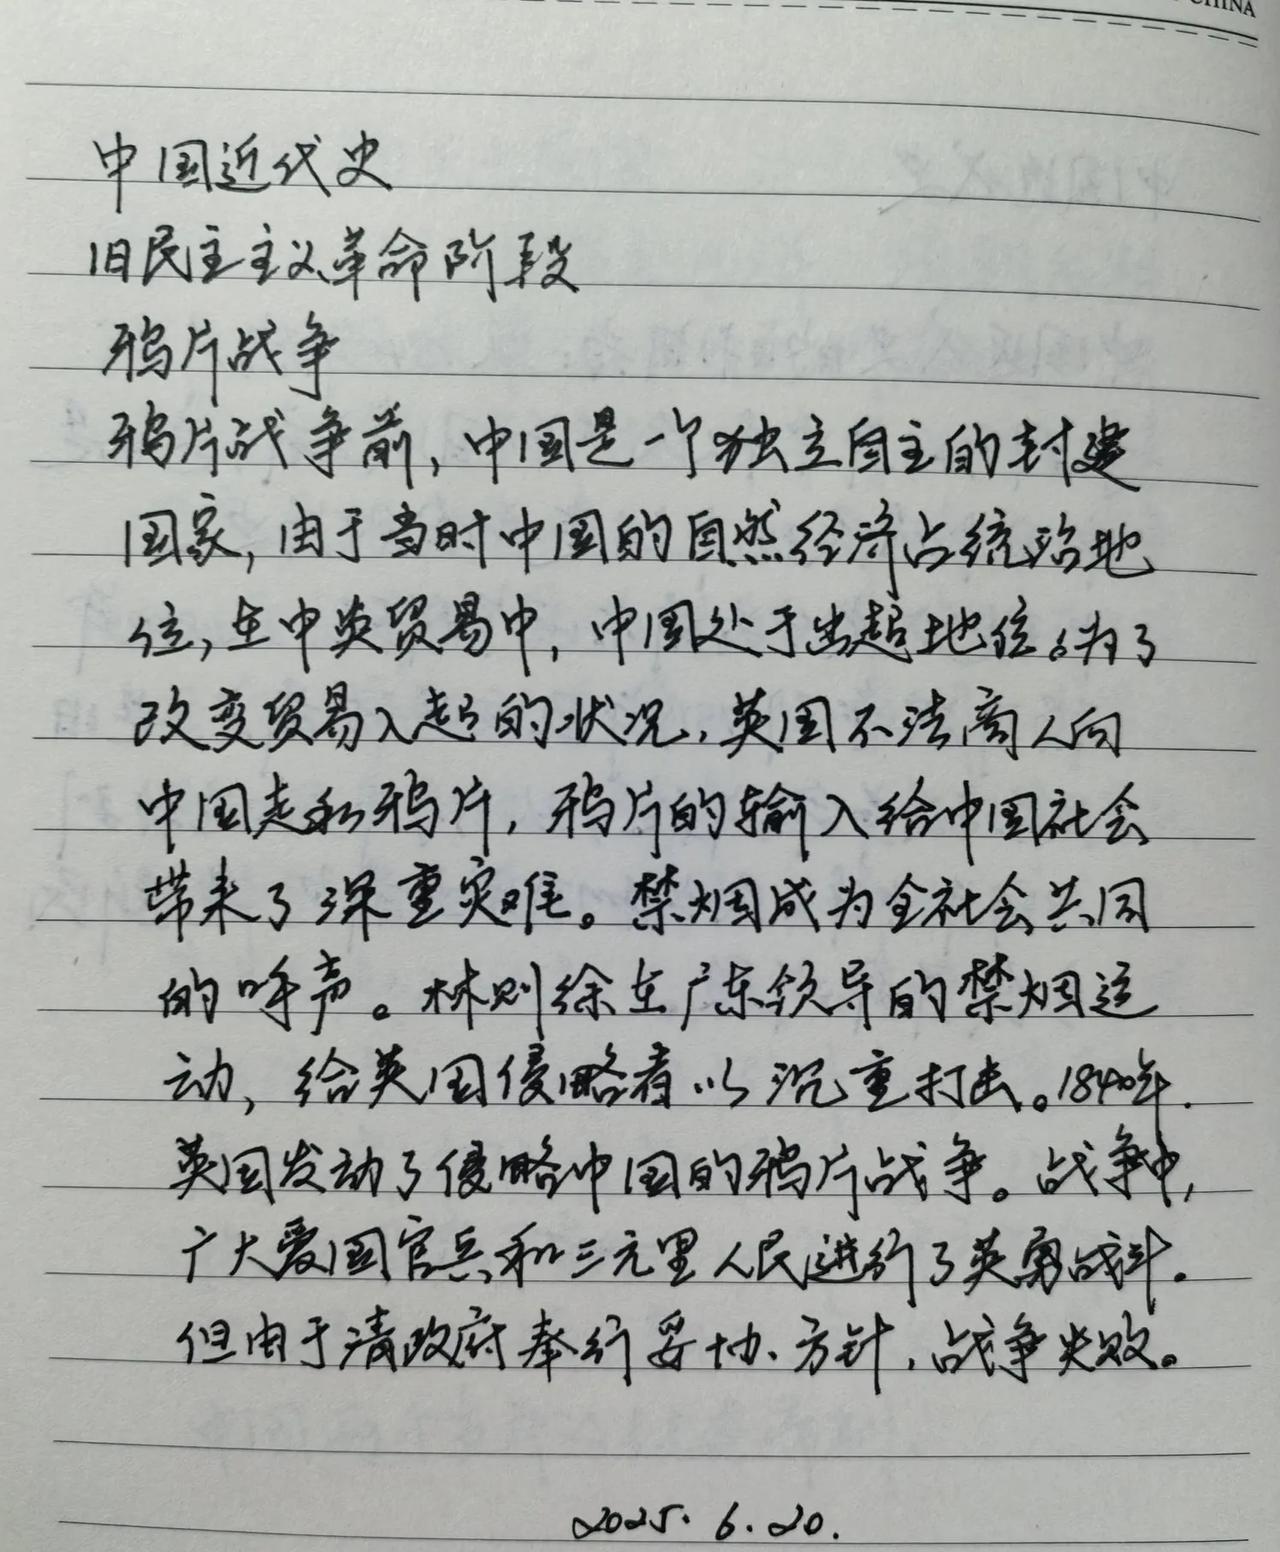 CHINA
中国近代史
旧民主主义革命阶段
鸦片战争
鸦片战争前,中国是一个独立自主的封建
国家,由于当时中国的自然经济占统治地
位,在中英贸易中,中国处于出超地位。为了
改变贸易入超的状况,英国不法商人向
中国走私鸦片,鸦片的输入给中国社会
带来了深重灾难。禁烟成为全社会共同
的呼声。林则徐在广东领导的禁烟运
动,给英国侵略者以沉重打击。1840年.
英国发动了侵略中国的鸦片战争。战争中,
广大爱国官兵和三元里人民进行了英勇战斗.
但由于清政府奉行妥协、方针,战争失败。
2025.6.20.